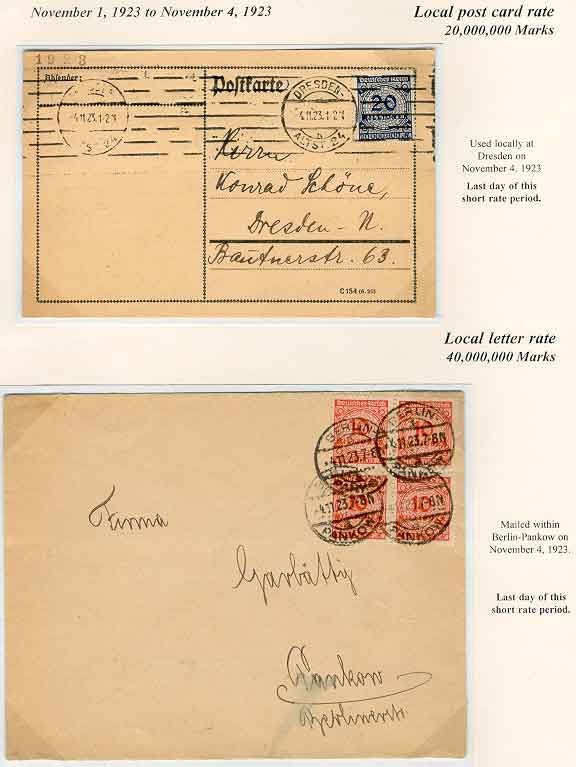 November 1, 1923 to November 4, 1923
Local post card rate
20,000,000 Marks
1923
Absender:
Postkarte
DRESDEN-
4.11.23.1-2N
ALTST. 24
Deutsches Reich
20
Herrn
Konrad Schöne,
Dresden - N.
Bautnerstr. 63.
C 154
Used locally at
Dresden on
November 4, 1923
Last day of this
short rate period.
Local letter rate
40,000,000 Marks
Deutsches Reich
10
BERLIN-
4.11.23.7-8N
PANKOW
Firma
Garbättig
Pankow
Berlinerstr.
Mailed within
Berlin-Pankow on
November 4, 1923.
Last day of this
short rate period.